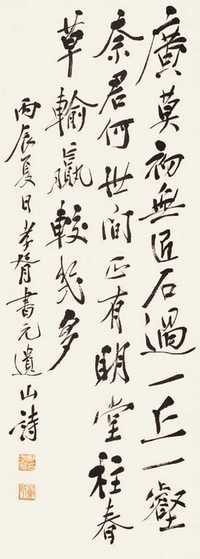 廣莫初無匠石過一丘一壑
奈君何世间正有明堂柱春
草輸贏較幾多
丙辰夏日孝胥書元遺山詩